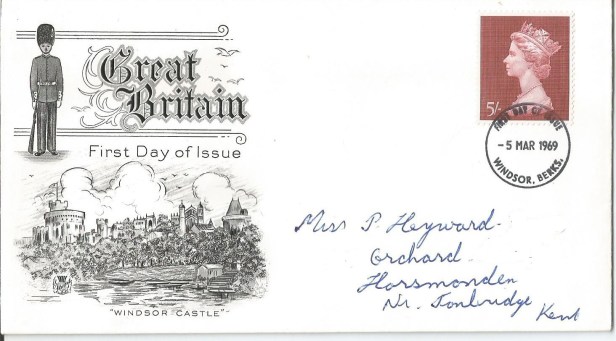 Great
Britain
First Day of Issue
"WINDSOR CASTLE"
5/-
FIRST DAY OF ISSUE
- 5 MAR 1969
WINDSOR, BERKS.
Miss P. Heyward.
Orchard.
Horsmonden
Nr. Tonbridge
Kent